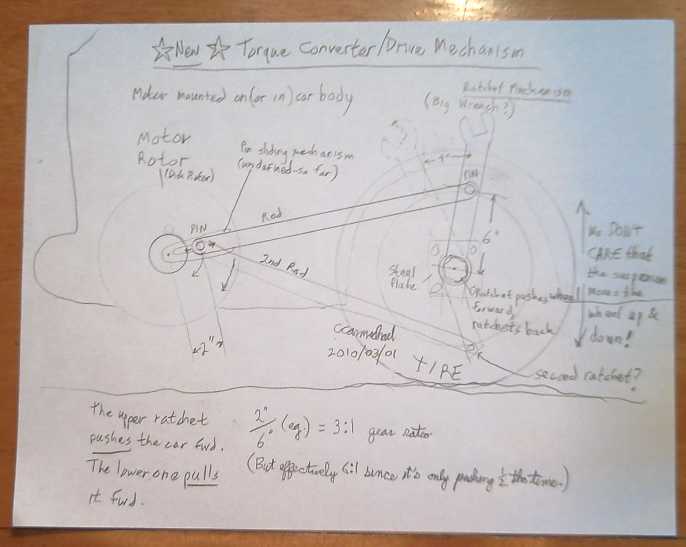 ☆ New ☆ Torque Converter/Drive Mechanism
Motor mounted on (or in) car body
Ratchet Mechanism
(Big Wrench?)
Motor
Rotor
(Disk Rotor)
Pin sliding mechanism
(undefined so far)
4"
PIN
PIN
Rod
6"
2nd Rod
Steel
Plate
We DON'T
CARE that
the suspension
moves the
wheel up &
down!
(Ratchet pushes when
forward,
ratchets back
2"
ccarmichael
2010/03/01
TIRE
second ratchet?
The upper ratchet
pushes the car fwd.
The lower one pulls
it fwd.
2"/6" (eg.) = 3:1 gear ratio
(But effectively 6:1 since it's only pushing ½ the time.)